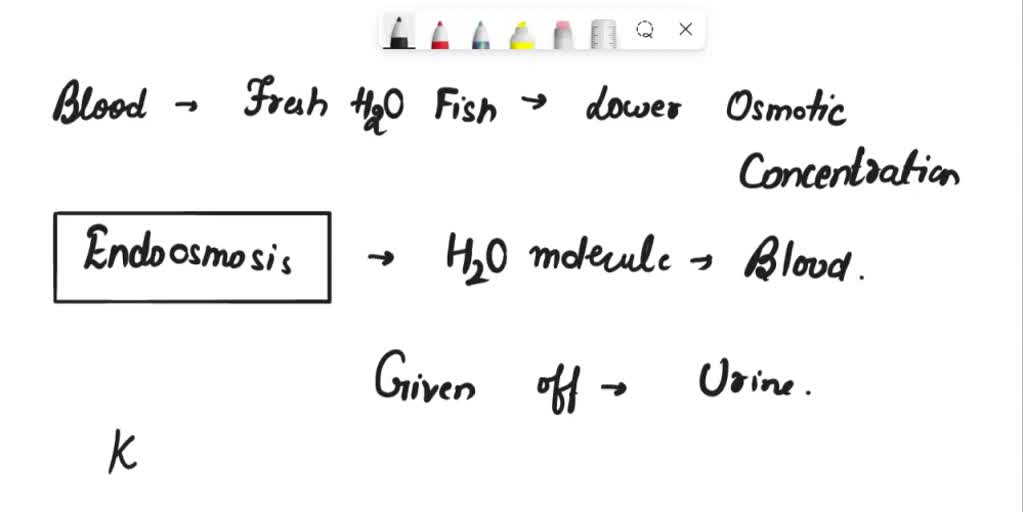 Blood → Fresh H₂O Fish → Lower Osmotic
Concentration
Endoosmosis → H₂O molecule → Blood.
Given off → Urine.
K